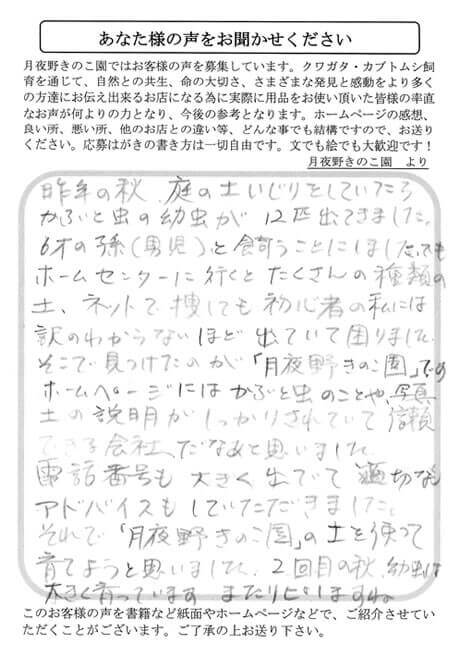 あなた様の声をお聞かせください
月夜野きのこ園ではお客様の声を募集しています。クワガタ・カブトムシ飼
育を通じて、自然との共生、命の大切さ、さまざまな発見と感動をより多く
の方達にお伝え出来るお店になる為に実際に用品をお使い頂いた皆様の率直
なお声が何よりの力となり、今後の参考となります。ホームページの感想、
良い所、悪い所、他のお店との違い等、どんな事でも結構ですので、お送り
ください。応募はがきの書き方は一切自由です。文でも絵でも大歓迎です！
月夜野きのこ園　より
昨年の秋 庭の土いじりをしていたら
かぶと虫の幼虫が 12匹出てきました。
6才の孫(男児)と飼うことにしました。でも
ホームセンターに行くとたくさんの種類の
土、ネットで捜しても初心者の私には
訳のわからないほど出ていて困りました。
そこで見つけたのが「月夜野きのこ園」です
ホームページにはかぶと虫のことや、写真
土の説明がしっかりされていて信頼
できる会社だなあと思いました。
電話番号も大きく出てて適切な
アドバイスもしていただきました。
それで「月夜野きのこ園」の土を使って
育てようと思いました。2回目の秋、幼虫は
大きく育っています またリピしますね
このお客様の声を書籍など紙面やホームページなどで、ご紹介させてい
ただくことがございます。ご了承の上お送り下さい。